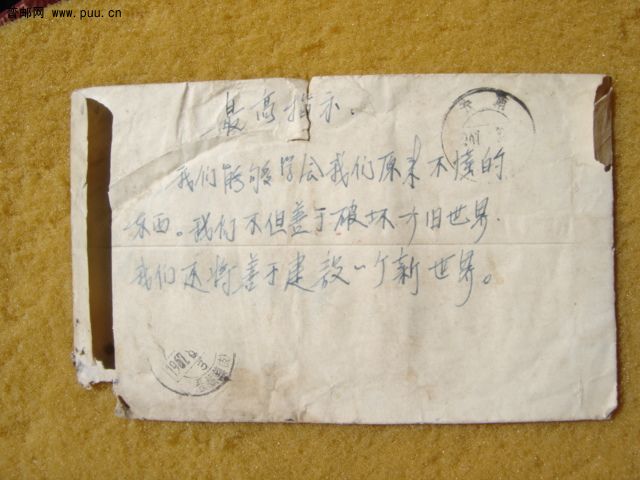 普邮网 www.puu.cn
最高指示.
我们能够学会我们原来不懂的
东西。我们不但善于破坏一个旧世界.
我们还将善于建设一个新世界。
1967